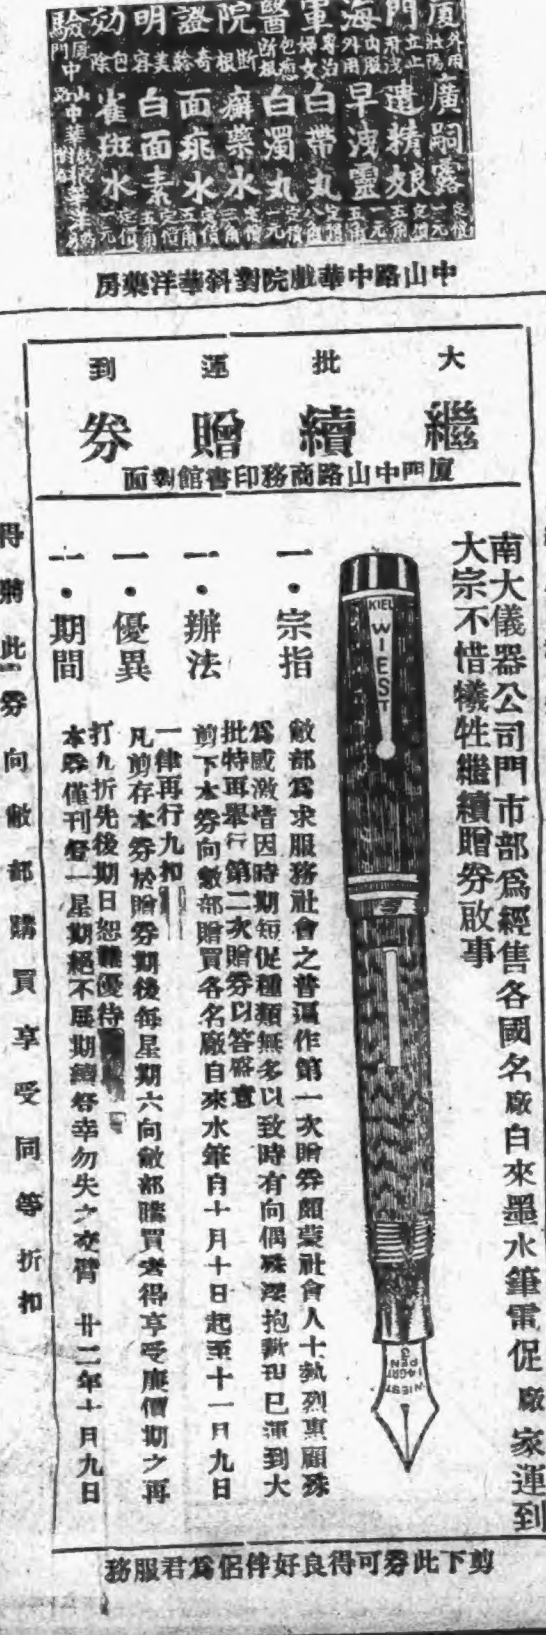 廈門海軍醫院證明効驗
外用壯陽 廣嗣露 定價一元
立止 遺精娘 定價五角
內服外用 早洩靈 一元五角
專治婦女 白帶丸 定價八角
包愈斷根 白濁丸 定價一元
斷根 癬藥水 定價二角
奇 面疵水 定價五角
美容 白面素 定價五角
除 雀斑水 定價一元
中山路中華戲院對斜華洋藥房
大批運到
繼續贈券
廈門中山路商務印書館對面
南大儀器公司門市部為經售各國名廠自來墨水筆電促廠家運到
大宗不惜犧牲繼續贈券啟事
KIEL
WIEST
WIEST
14GRT
PEN
一・宗指
敝部為求服務社會之普遍作第一次贈券頗蒙社會人士熱烈惠顧殊
為感激惜因時期短促種類無多以致時有向偶殊深抱歉現已運到大
批特再舉行第二次贈券以答盛意
一・辦法
剪下本券向敝部購買各名廠自來水筆自十月十日起至十一月九日
一律再行九扣
一・優異
凡剪存本券於贈券期後每星期六向敝部購買者得享受廉價期之再
打九折先後期日恕難優待
一・期間
本券僅刊登一星期絕不展期續登幸勿失之交臂 廿二年十月九日
得將此券向敝部購買享受同等折扣
剪下此券可得良好伴侶為君服務